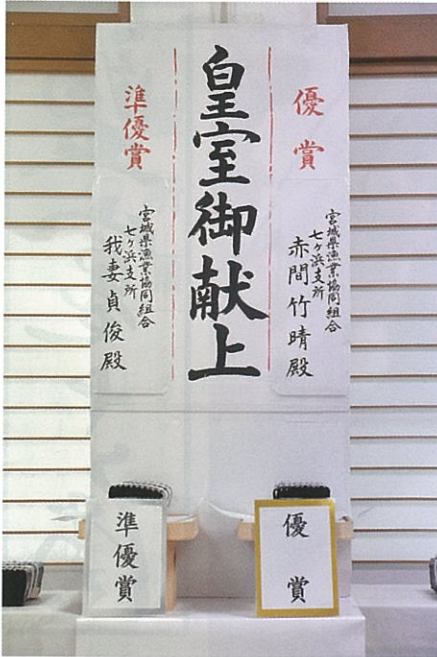 優賞
宮城県漁業協同組合
七ケ浜支所
赤間竹晴殿
皇室御献上
準優賞
宮城県漁業協同組合
七ケ浜支所
我妻貞俊殿
優賞
準優賞